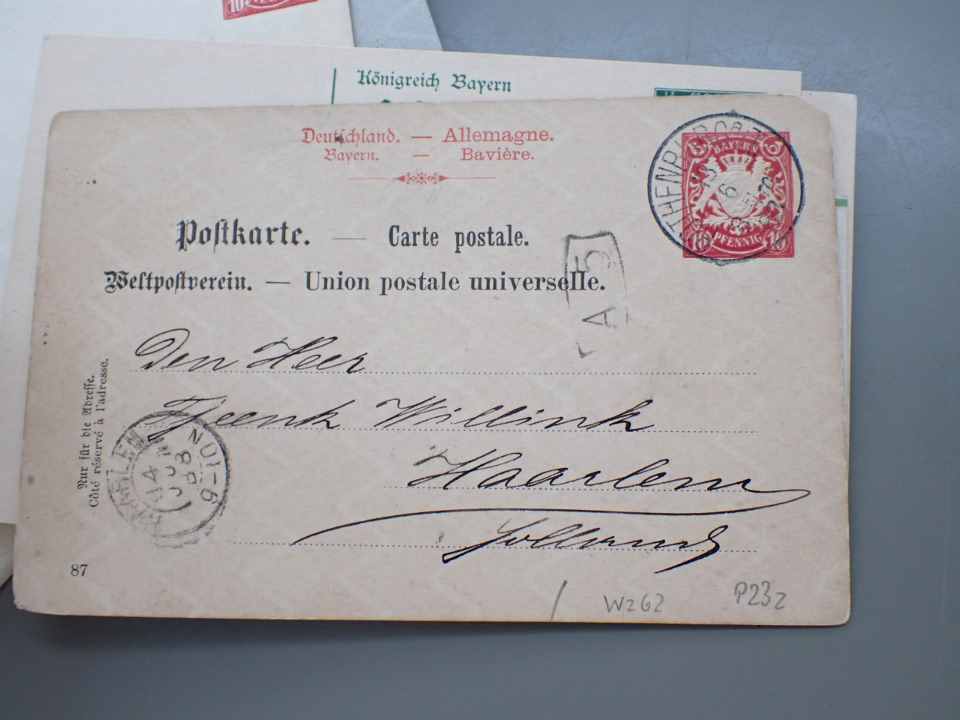 10
Königreich Bayern
Deutschland. — Allemagne.
Bayern. — Bavière.
Postkarte. — Carte postale.
Weltpostverein. — Union postale universelle.
BAYERN
10 PFENNIG 10
13
6
A 5
Den Heer
Tjeenk Willink
Haarlem
Holland
Nur für die Adresse.
Côté réservé à l'adresse.
HAARLEM
14 JUN 88
87
WZ62
P23z